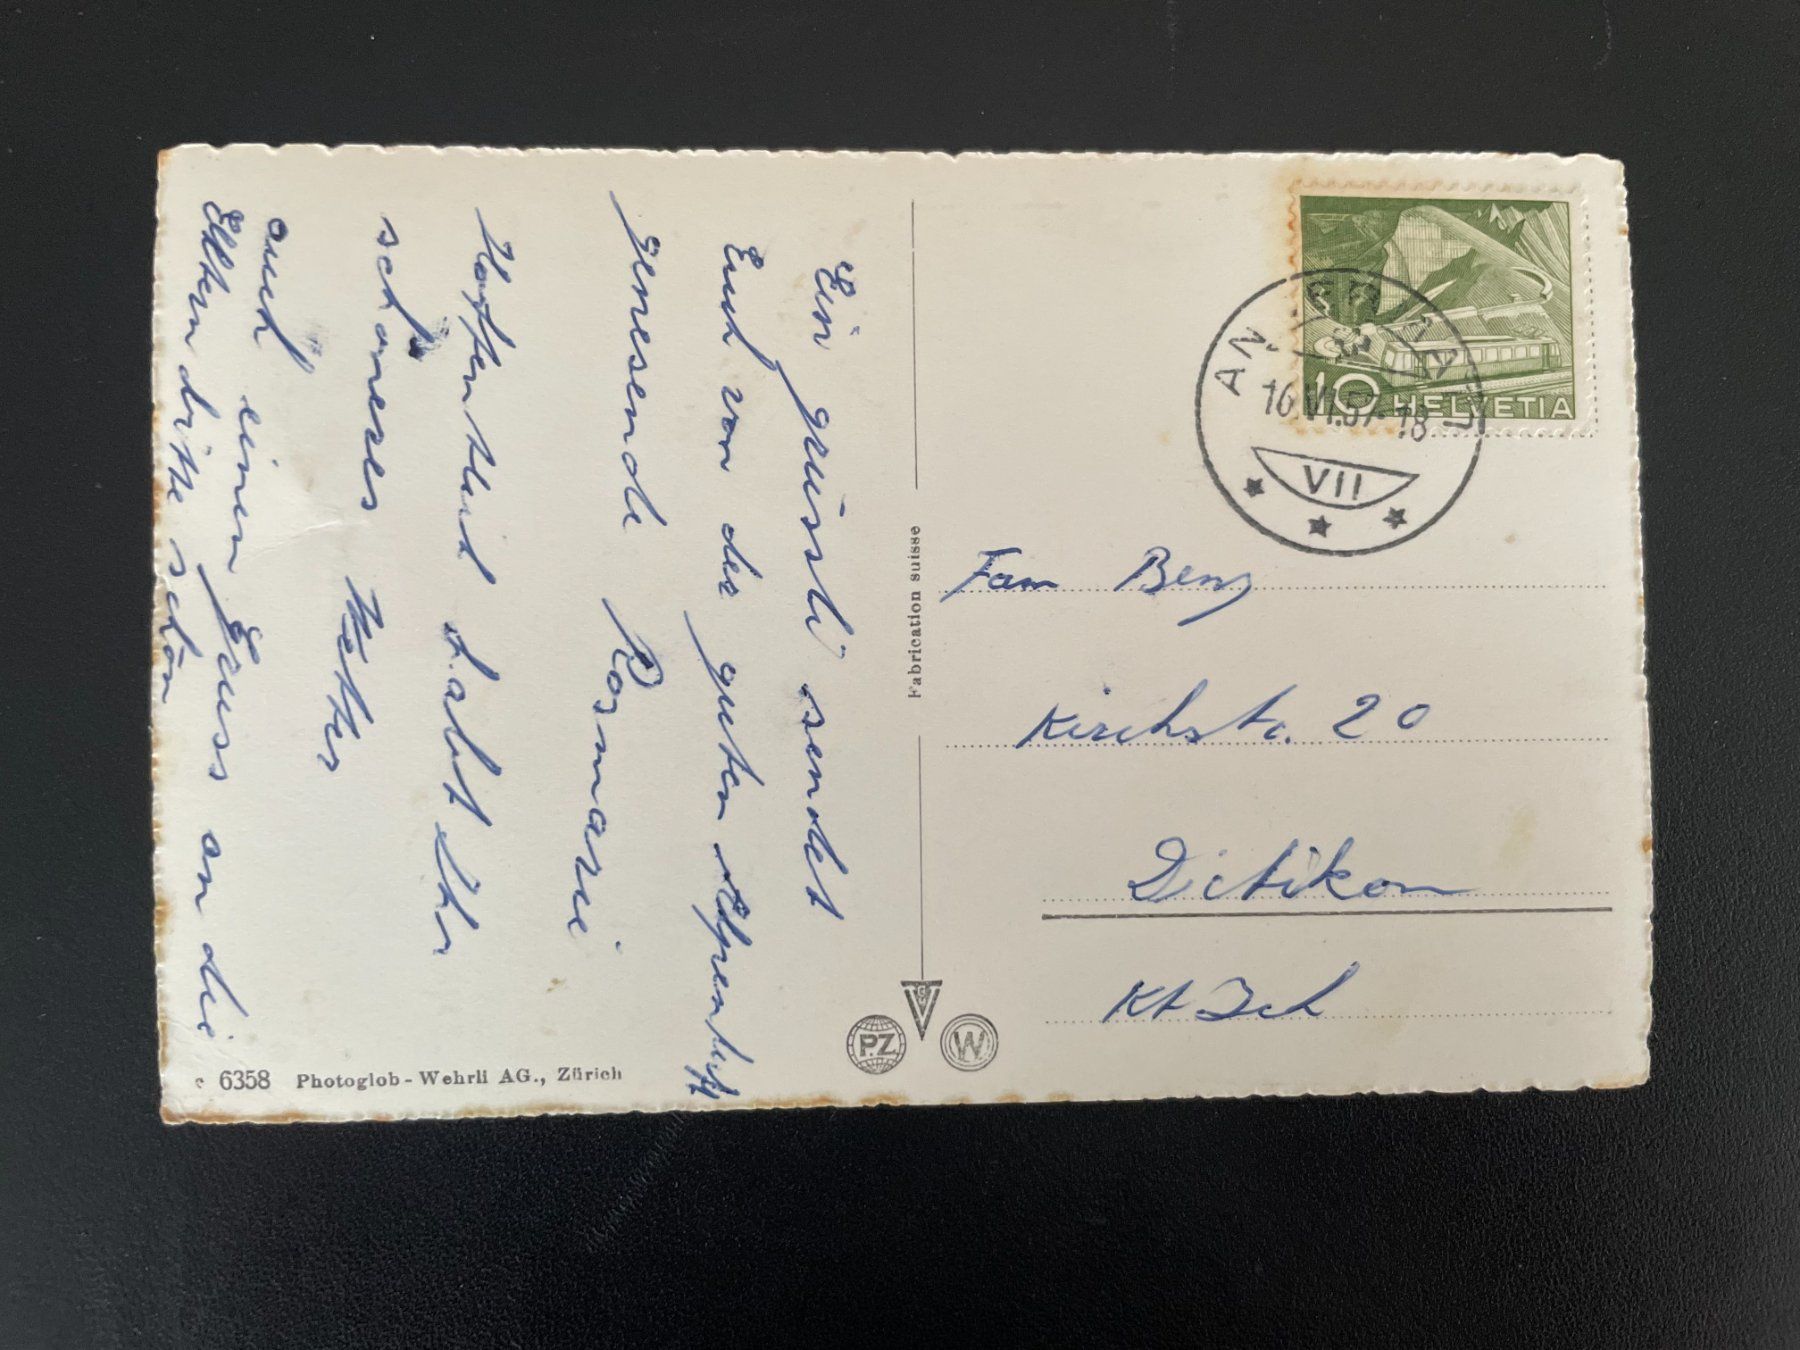 Ein grüssli sendet
Euch von der guten Alpenluft
genesende Rosmarie
Hoffentlich habt Ihr
schöneres Wetter
auch einen Gruss an die
Eltern bitte schön
6358 Photoglob-Wehrli AG., Zürich
Fabrication suisse
P.Z
W
10 HELVETIA
VII
Fam Benz
Kirchstr. 20
Dietikon
Kt Zch